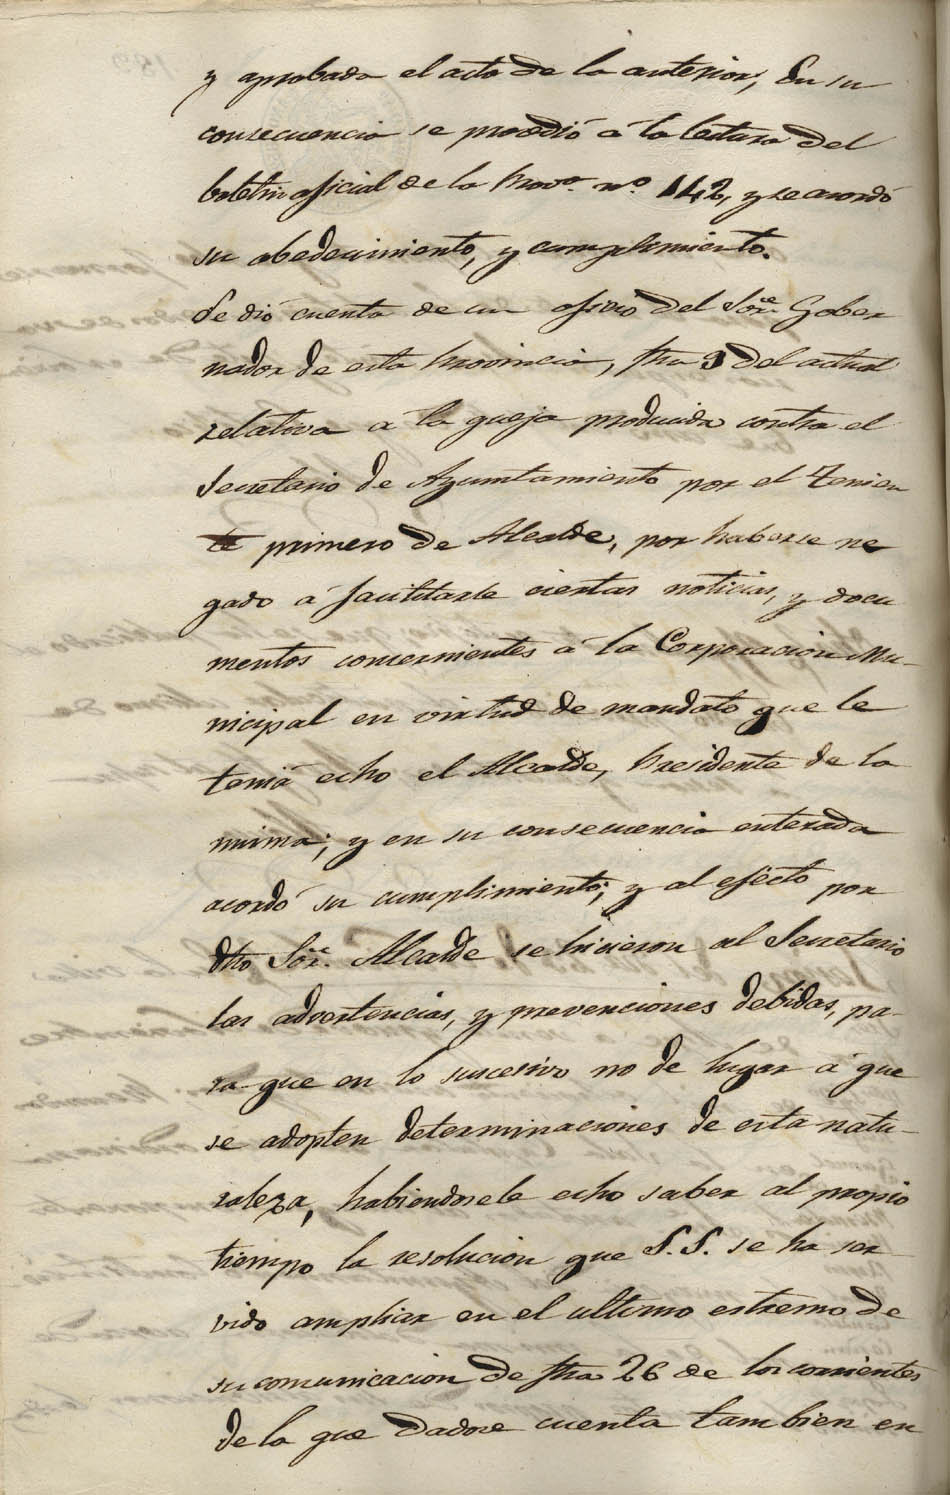 y aprobada el acta de la anterior, En su
consecuencia se procedió a la lectura del
boletin oficial de la Prova. nº 142, y se acordó
su obedecimiento, y cumplimiento.
Se dió cuenta de un oficio del Sor. Gober
nador de esta Provincia, fha 9 del actual
relativa a la queja producida contra el
Secretario de Ayuntamiento por el Tenien
te primero de Alcalde, por haberse ne
gado á facilitarle ciertas noticias, y docu
mentos concernientes á la Corporacion Mu-
nicipal en virtud de mandato que le
tenia echo el Alcalde, Presidente de la
misma; y en su consecuencia enterada
acordó su cumplimiento; y al efecto por
dho Sor. Alcalde se hicieron al Secretario
las advertencias, y prevenciones debidas, pa-
ra que en lo sucesivo no de lugar á que
se adopten determinaciones de esta natu-
raleza, habiendosele echo saber al propio
tiempo la resolucion que S.S. se ha ser
vido ampliar en el ultimo estremo de
su comunicacion de fha 26 de los corrientes
de la que dadose cuenta tambien en